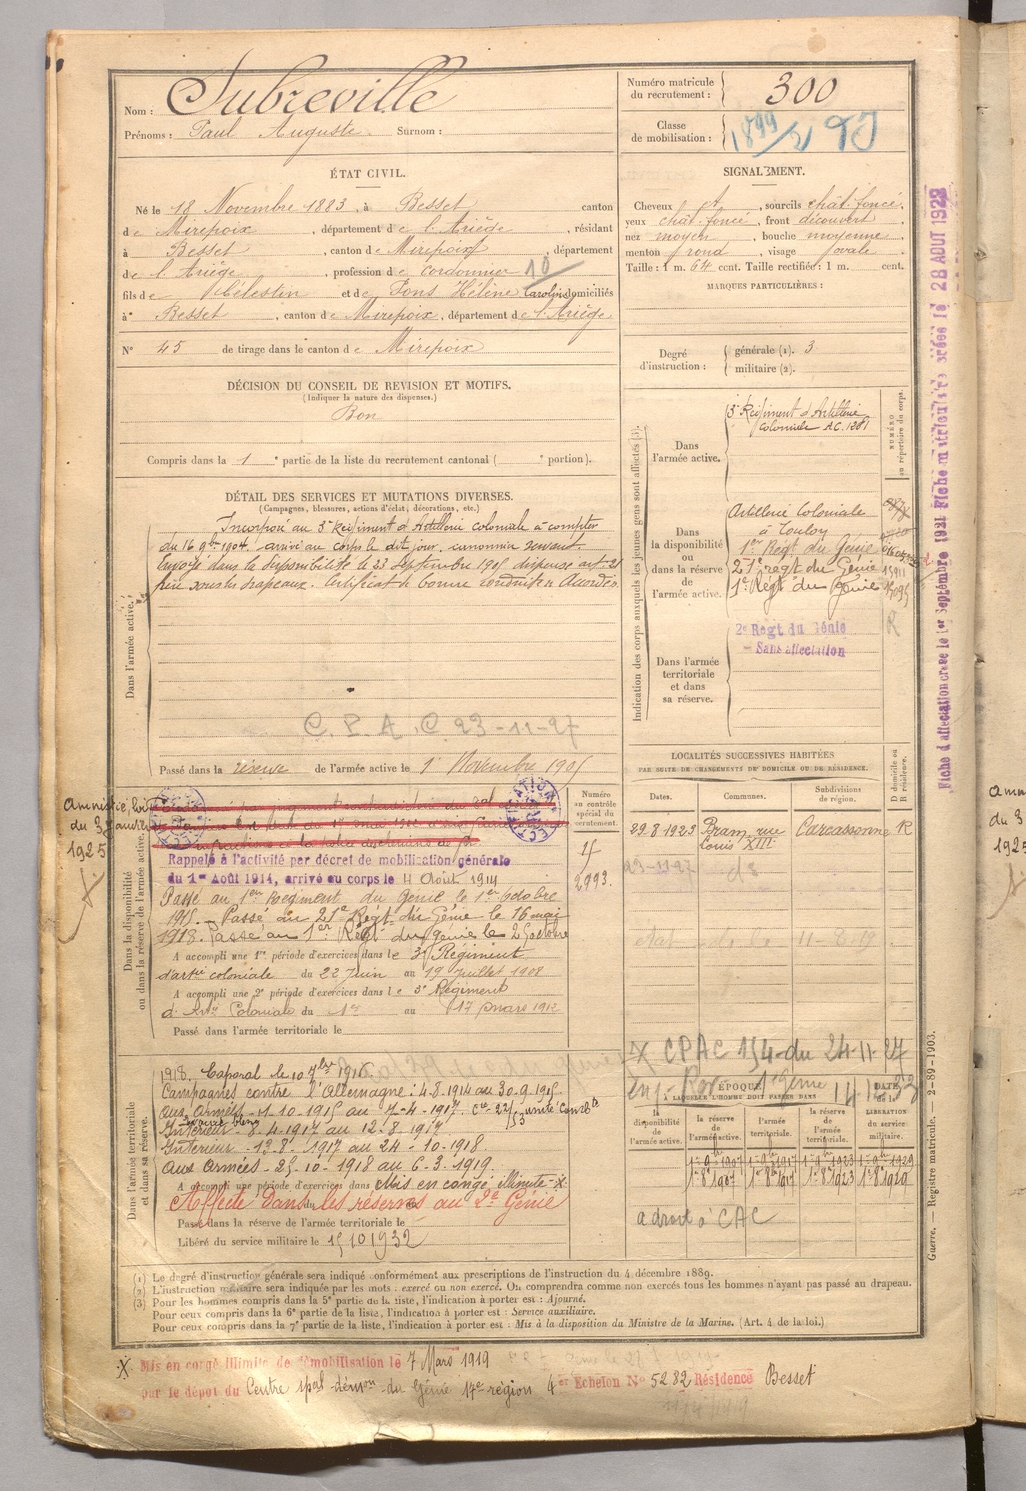 Nom : Subreville
Prénoms : Paul Auguste Surnom :
Numéro matricule du recrutement : 300
Classe de mobilisation : 1899/2
ÉTAT CIVIL.
Né le 18 Novembre 1883, à Besset canton
de Mirepoix, département de l'Ariège, résidant
à Besset, canton de Mirepoix, département
de l'Ariège, profession de cordonnier 10
fils de Célestin et de Pons Hélène Caroline domiciliés
à Besset, canton de Mirepoix, département de l'Ariège
N° 45 de tirage dans le canton de Mirepoix
SIGNALEMENT.
Cheveux , sourcils chât. foncé,
yeux chât. foncé, front découvert
nez moyen, bouche moyenne,
menton rond, visage ovale.
Taille : 1 m. 64 cent. Taille rectifiée : 1 m. cent.
MARQUES PARTICULIÈRES :
Degré d'instruction : générale (1). 3
militaire (2).
DÉCISION DU CONSEIL DE REVISION ET MOTIFS.
(Indiquer la nature des dispenses.)
Bon
Compris dans la 1 e partie de la liste du recrutement cantonal ( e portion).
DÉTAIL DES SERVICES ET MUTATIONS DIVERSES.
(Campagnes, blessures, actions d'éclat, décorations, etc.)
Dans l'armée active.
Incorporé au 3e Régiment d'Artillerie coloniale à compter
du 16 9bre 1904. arrivé au corps le dit jour. canonnier servant.
Envoyé dans la disponibilité le 23 Septembre 1905 dispensé art. 21
frère sous les drapeaux. Certificat de bonne conduite Accordé.
C.P.A.C 23-11-27
Passé dans la réserve de l'armée active le 1 Novembre 1905
Indication des corps auxquels les jeunes gens sont affectés (3).
NUMÉRO au répertoire du corps.
Dans l'armée active.
3e Régiment d'Artillerie
Coloniale A.C. 1281
Dans la disponibilité ou dans la réserve de l'armée active.
Artillerie Coloniale
à Toulon
1er Regt du Génie
21e regt du Génie
1er Régt du Génie
Dans l'armée territoriale et dans sa réserve.
2e Regt du Génie
- Sans affectation
LOCALITÉS SUCCESSIVES HABITÉES
PAR SUITE DE CHANGEMENTS DE DOMICILE OU DE RÉSIDENCE.
D domicile ou R résidence.
Dates. Communes. Subdivisions de région.
29.8.1923 Bram, rue Louis XIII Carcassonne R
23-11-27 do
Numéro au contrôle spécial du recrutement.
2993.
Amnistie, loi
du 3 Janvier
1925
RECTIFICATION
Dans la disponibilité ou dans la réserve de l'armée active.
Rappelé à l'activité par décret de mobilisation générale
du 1er Août 1914, arrivé au corps le 4 Août 1914
Passé au 1er Régiment du Génie le 1er Octobre
1915. Passé au 21e Regt du Génie le 16 mai
1918. Passé au 1er Régt du génie le 25 octobre
A accompli une 1re période d'exercices dans le 3e Régiment
d'artie coloniale du 22 Juin au 19 Juillet 1908
A accompli une 2e période d'exercices dans le 3e Régiment
d'Artie Coloniale du 1er au 17 mars 1912
Passé dans l'armée territoriale le
X CPAC 154 du 24-11-27
Dans l'armée territoriale et dans sa réserve.
1918. Caporal le 10 7bre 1916.
Campagnes contre l'Allemagne : 4.8.1914 au 30.9.1915
aux Armées 1.10.1915 au 7-4-1917. Cie 22/53 unité Combte
Intérieur - 8-4-1917 au 12.8.1917
Intérieur - 13.8.1917 au 24-10-1918
aux armées - 25-10-1918 au 6-3-1919.
A accompli une période d'exercices dans Mis en congé illimité X
Affecté dans les réserves au 2e Génie
Passé dans la réserve de l'armée territoriale le
Libéré du service militaire le 15 10 1932
ÉPOQUE
À LAQUELLE L'HOMME DOIT PASSER DANS
DATE de la LIBÉRATION du service militaire.
la disponibilité de l'armée active. la réserve de l'armée active. l'armée territoriale. la réserve de l'armée territoriale.
1er 9bre 1907 1er 9bre 1917 1er 9bre 1923 1er 9bre 1929
1er 8 1907 1er 8bre 1917 1er 8 1923 1er 8 1929
a droit à CAC
(1) Le degré d'instruction générale sera indiqué conformément aux prescriptions de l'instruction du 4 décembre 1889.
(2) L'instruction militaire sera indiquée par les mots : exercé ou non exercé. On comprendra comme non exercés tous les hommes n'ayant pas passé au drapeau.
(3) Pour les hommes compris dans la 5e partie de la liste, l'indication à porter est : Ajourné.
Pour ceux compris dans la 6e partie de la liste, l'indication à porter est : Service auxiliaire.
Pour ceux compris dans la 7e partie de la liste, l'indication à porter est : Mis à la disposition du Ministre de la Marine. (Art. 4 de la loi.)
X Mis en congé illimité de démobilisation le 7 Mars 1919
par le dépôt du Centre spal démon du Génie 17e région 4er Echelon N° 5282 Résidence Besset
Guerre. — Registre matricule. — 2-89-1903.
Fiche d'affectation créée le 1er Septembre 1921 Fiche matricule créée le 28 AOUT 1922